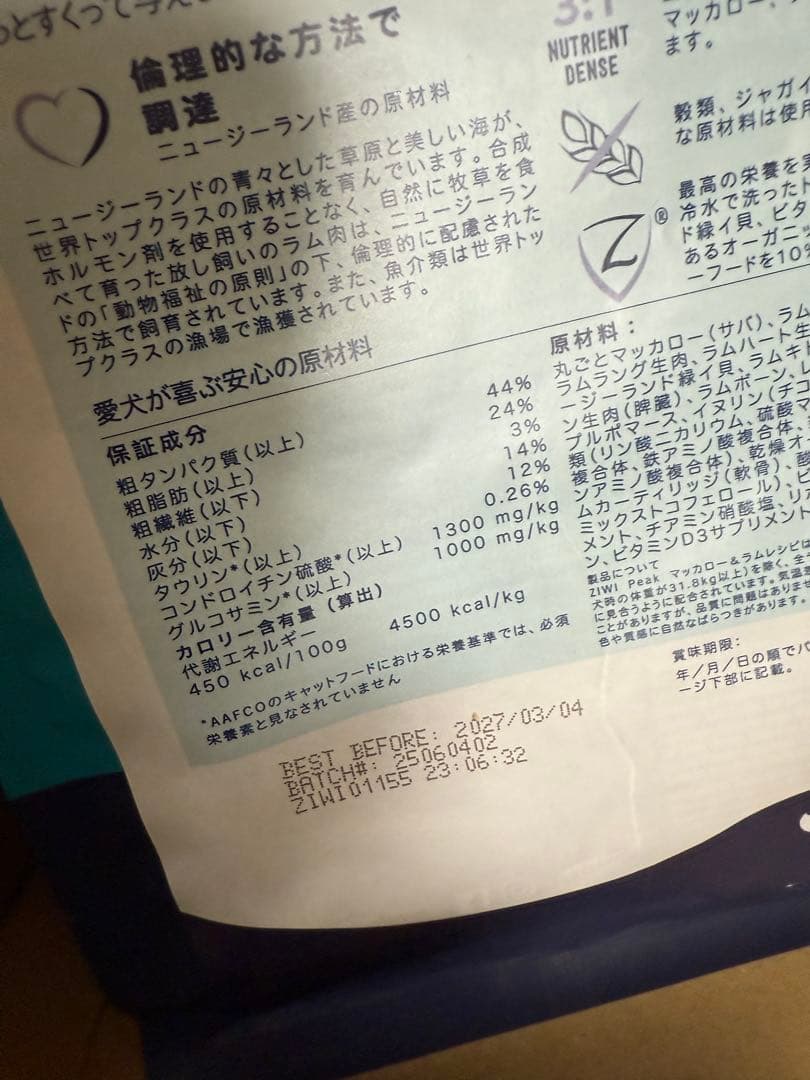 倫理的な方法で
調達
ニュージーランド産の原材料
ニュージーランドの青々とした草原と美しい海が、
世界トップクラスの原材料を育んでいます。合成
ホルモン剤を使用することなく、自然に牧草を食
べて育った放し飼いのラム肉は、ニュージーラン
ドの「動物福祉の原則」の下、倫理的に配慮された
方法で飼育されています。また、魚介類は世界トッ
プクラスの漁場で漁獲されています。
愛犬が喜ぶ安心の原材料
保証成分
粗タンパク質(以上) 44%
粗脂肪(以上) 24%
粗繊維(以下) 3%
水分(以下) 14%
灰分(以下) 12%
タウリン*(以上) 0.26%
コンドロイチン硫酸*(以上) 1300 mg/kg
グルコサミン*(以上) 1000 mg/kg
カロリー含有量(算出)
代謝エネルギー
450 kcal/100g 4500 kcal/kg
*AAFCOのキャットフードにおける栄養基準では、必須
栄養素と見なされていません
BEST BEFORE: 2027/03/04
BATCH#: 25060402
ZIWI01155 23:06:32
3:1
NUTRIENT
DENSE
マッカロー、
ます。
穀類、ジャガイ
な原材料は使用
Z®
最高の栄養を実
冷水で洗ったト
ド緑イ貝、ビタ
あるオーガニッ
ーフードを10%
原材料:
丸ごとマッカロー(サバ)、ラム
ラムラング生肉、ラムハート生
ージーランド緑イ貝、ラムキド
ン生肉(脾臓)、ラムボーン、レ
プルポマース、イヌリン(チコ
類(リン酸ニカリウム、硫酸マ
複合体、鉄アミノ酸複合体、
ンアミノ酸複合体)、乾燥オ
ムカーティリッジ(軟骨)、酸
ミックストコフェロール)、ビ
メント、チアミン硝酸塩、リボ
ン、ビタミンD3サプリメント
製品について
ZIWI Peak マッカロー&ラムレシピは
犬時の体重が31.8kg以上)を除く、全
に見合うように配合されています。気温差
ことがありますが、品質に問題はありませ
色や質感に自然なばらつきがあります。
賞味期限:
年/月/日の順でパ
ージ下部に記載。